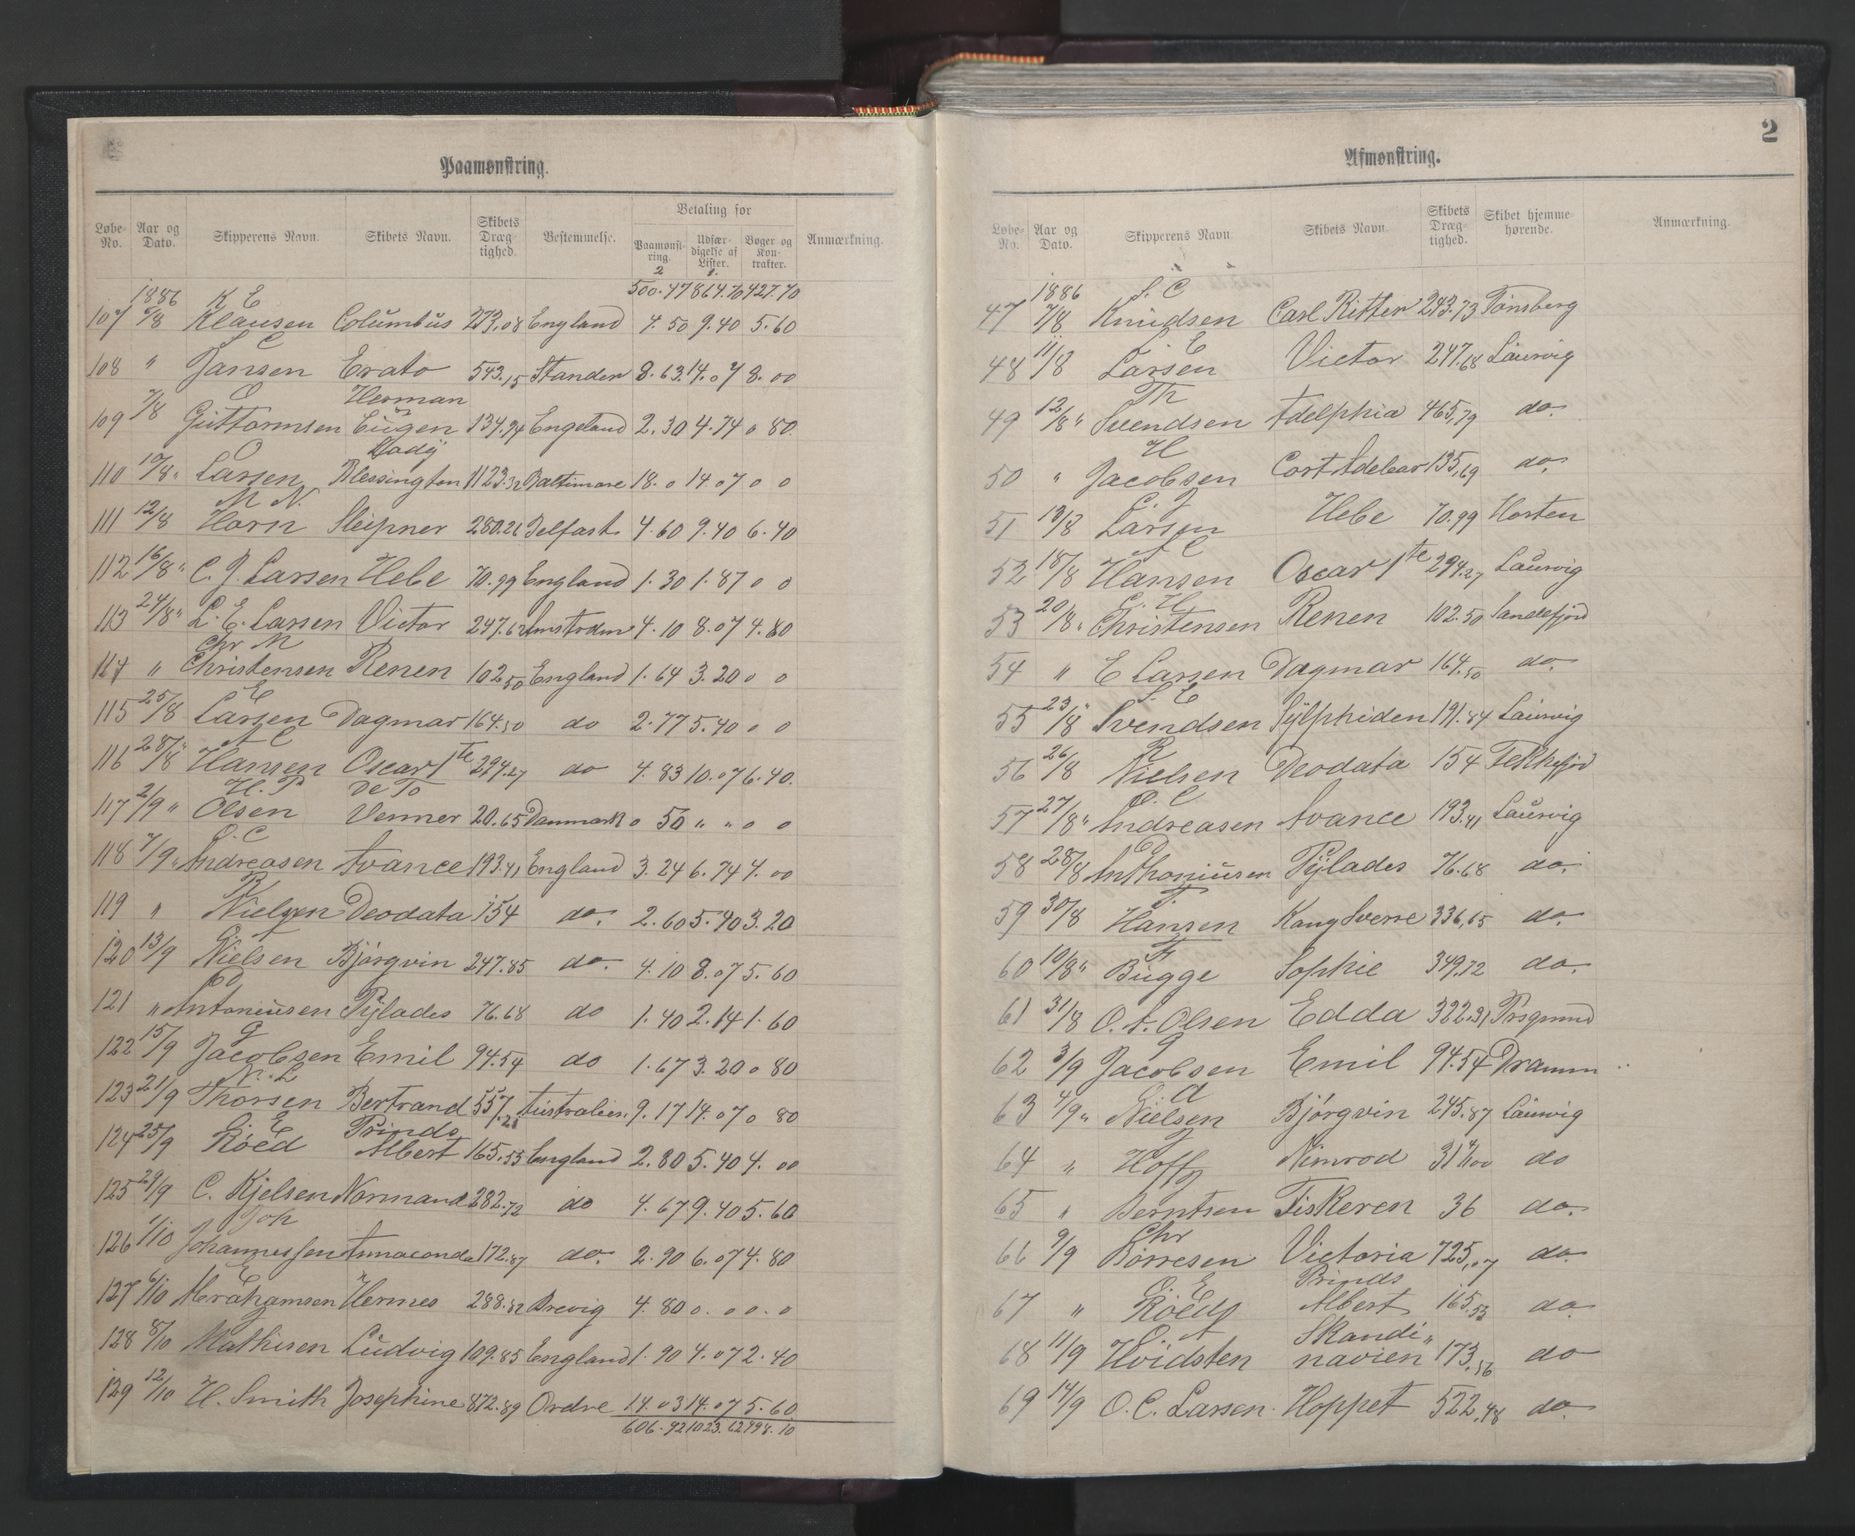 Paamønstring.
Løbe-No. Aar og Dato. Skipperens Navn. Skibets Navn. Skibets Dræg-tighed. Bestemmelse. Betaling for Paamønst-ring. Udfær-digelse af Lister. Bøger og Kon-trakter. Anmærkning.
2 1.
1886 500.47 864.70 427.70
107 6/8 K E Klausen Columbus 273.08 England 4.50 9.40 5.60
108 " Jansen Erato 543.15 8.63 14.07 8.00
109 7/8 Guttormsen Herman Eugen 134.94 England 2.30 4.74 0 80
110 10/8 " O Larsen Lady Blessington 1123.32 Baltimore 18.0 14.07 0 0
111 12/8 M N. Horn Sleipner 280.26 Belfast 4.60 9.40 6.40
112 16/8 " C. J. Larsen Hebe 70.99 England 1.30 1.87 0 0
113 24/8 " L. E. Larsen Victor 247.62 Amstrdm 4.10 8.07 4.80
114 " Chr M Christensen Renen 102.50 England 1.64 3.20 0 0
115 25/8 E Larsen Dagmar 164.50 do 2.77 5.40 0 0
116 28/8 " A C Hansen Oscar 1te 294.27 do 4.83 10.07 6.40.
117 2/9 " H. P Olsen De To Venner 20.65 Danmark 0 50 " " 0 0
118 7/9 " O. C Andreasen Avance 193.41 England 3.24 6.74 4.00
119 " R Nielsen Deodata 154 do. 2.60 5.40 3.20
120 13/9 Nielsen Bjørgvin 247.85 do. 4.10 8.07 5.60
121 " Antoniusen Pylades 76.68 do 1.40 2.14 1.60
122 15/9 J Jacobsen Emil 94.54 do 1.67 3.20 0 80
123 21/9 N. L Thorsen Bertrand 557.25 Australien. 9.17 14.07 0 80
124 25/9 C E Røed Prinds Albert 165.53 England 2.80 5.40 4.00
125 29/9 C. Kjelsen Normand 282.72 do 4.67 9.40 5.60
126 1/10 Joh Johannessen Annaconda 172.87 do. 2.90 6.07 4.80
127 6/10 E Abrahamsen Hermes 288.82 Brevig 4.80 0 . 0 0 . 0
128 8/10 Mathisen Ludvig 109.85 England 1.90 4.07 2.40
129 12/10 H. Smith Josephine 872.89 Ordre 14.03 14.07 5.60
606.92 1023.62 498.10
2
Afmønstring.
Løbe-No. Aar og Dato. Skipperens Navn. Skibets Navn. Skibets Dræg-tighed. Skibet hjemme-hørende. Anmærkning.
1886
47 7/8 S. C Knudsen Carl Ritter 243.73 Tønsberg
48 11/8 L E Larsen Victor 247.68 Laurvig
49 12/8 " Th Svendsen Adelphia 465.79 do.
50 " H Jacobsen Cort Adelear 135.69 do.
51 13/8 C. J Larsen Hebe 70.99 Horten
52 18/8 A C Hansen Oscar 1te 294.27 Laurvig
53 20/8 " C. H Christensen Renen 102.50 Sandefjord
54 " E Larsen Dagmar 164.50 do.
55 23/8 " S. E Svendsen Sylphiden 191.84 Laurvig
56 26/8 R Nielsen Deodata 154 Fekkefjord
57 27/8 " O. C Andreasen Avance 193.41 Laurvig
58 28/8 Anthoniusen Pylades 76.68 do.
59 30/8 T. Hansen Kong Sverre 336.65 do.
60 10/8 " Fr Bugge Sophie 349.72 do.
61 31/8 O. A. Olsen Edda 322.31 Prsgrund
62 3/9 J Jacobsen Emil 94.54 Dramm
63 4/9 " C A Nielsen Bjørgvin 245.87 Laurvig
64 " J Hoff Nimrod 314.00 do
65 " Berntsen Fiskeren 36 do.
66 9/9 Chr Børresen Victoria 725.07 do.
67 " C. E Røed Prinds Albert 165.53 do.
68 11/9 O. A Hvidsten Skandi" navien 173.56 do
69 14/9 O. C. Larsen Hoppet 522.48 do.